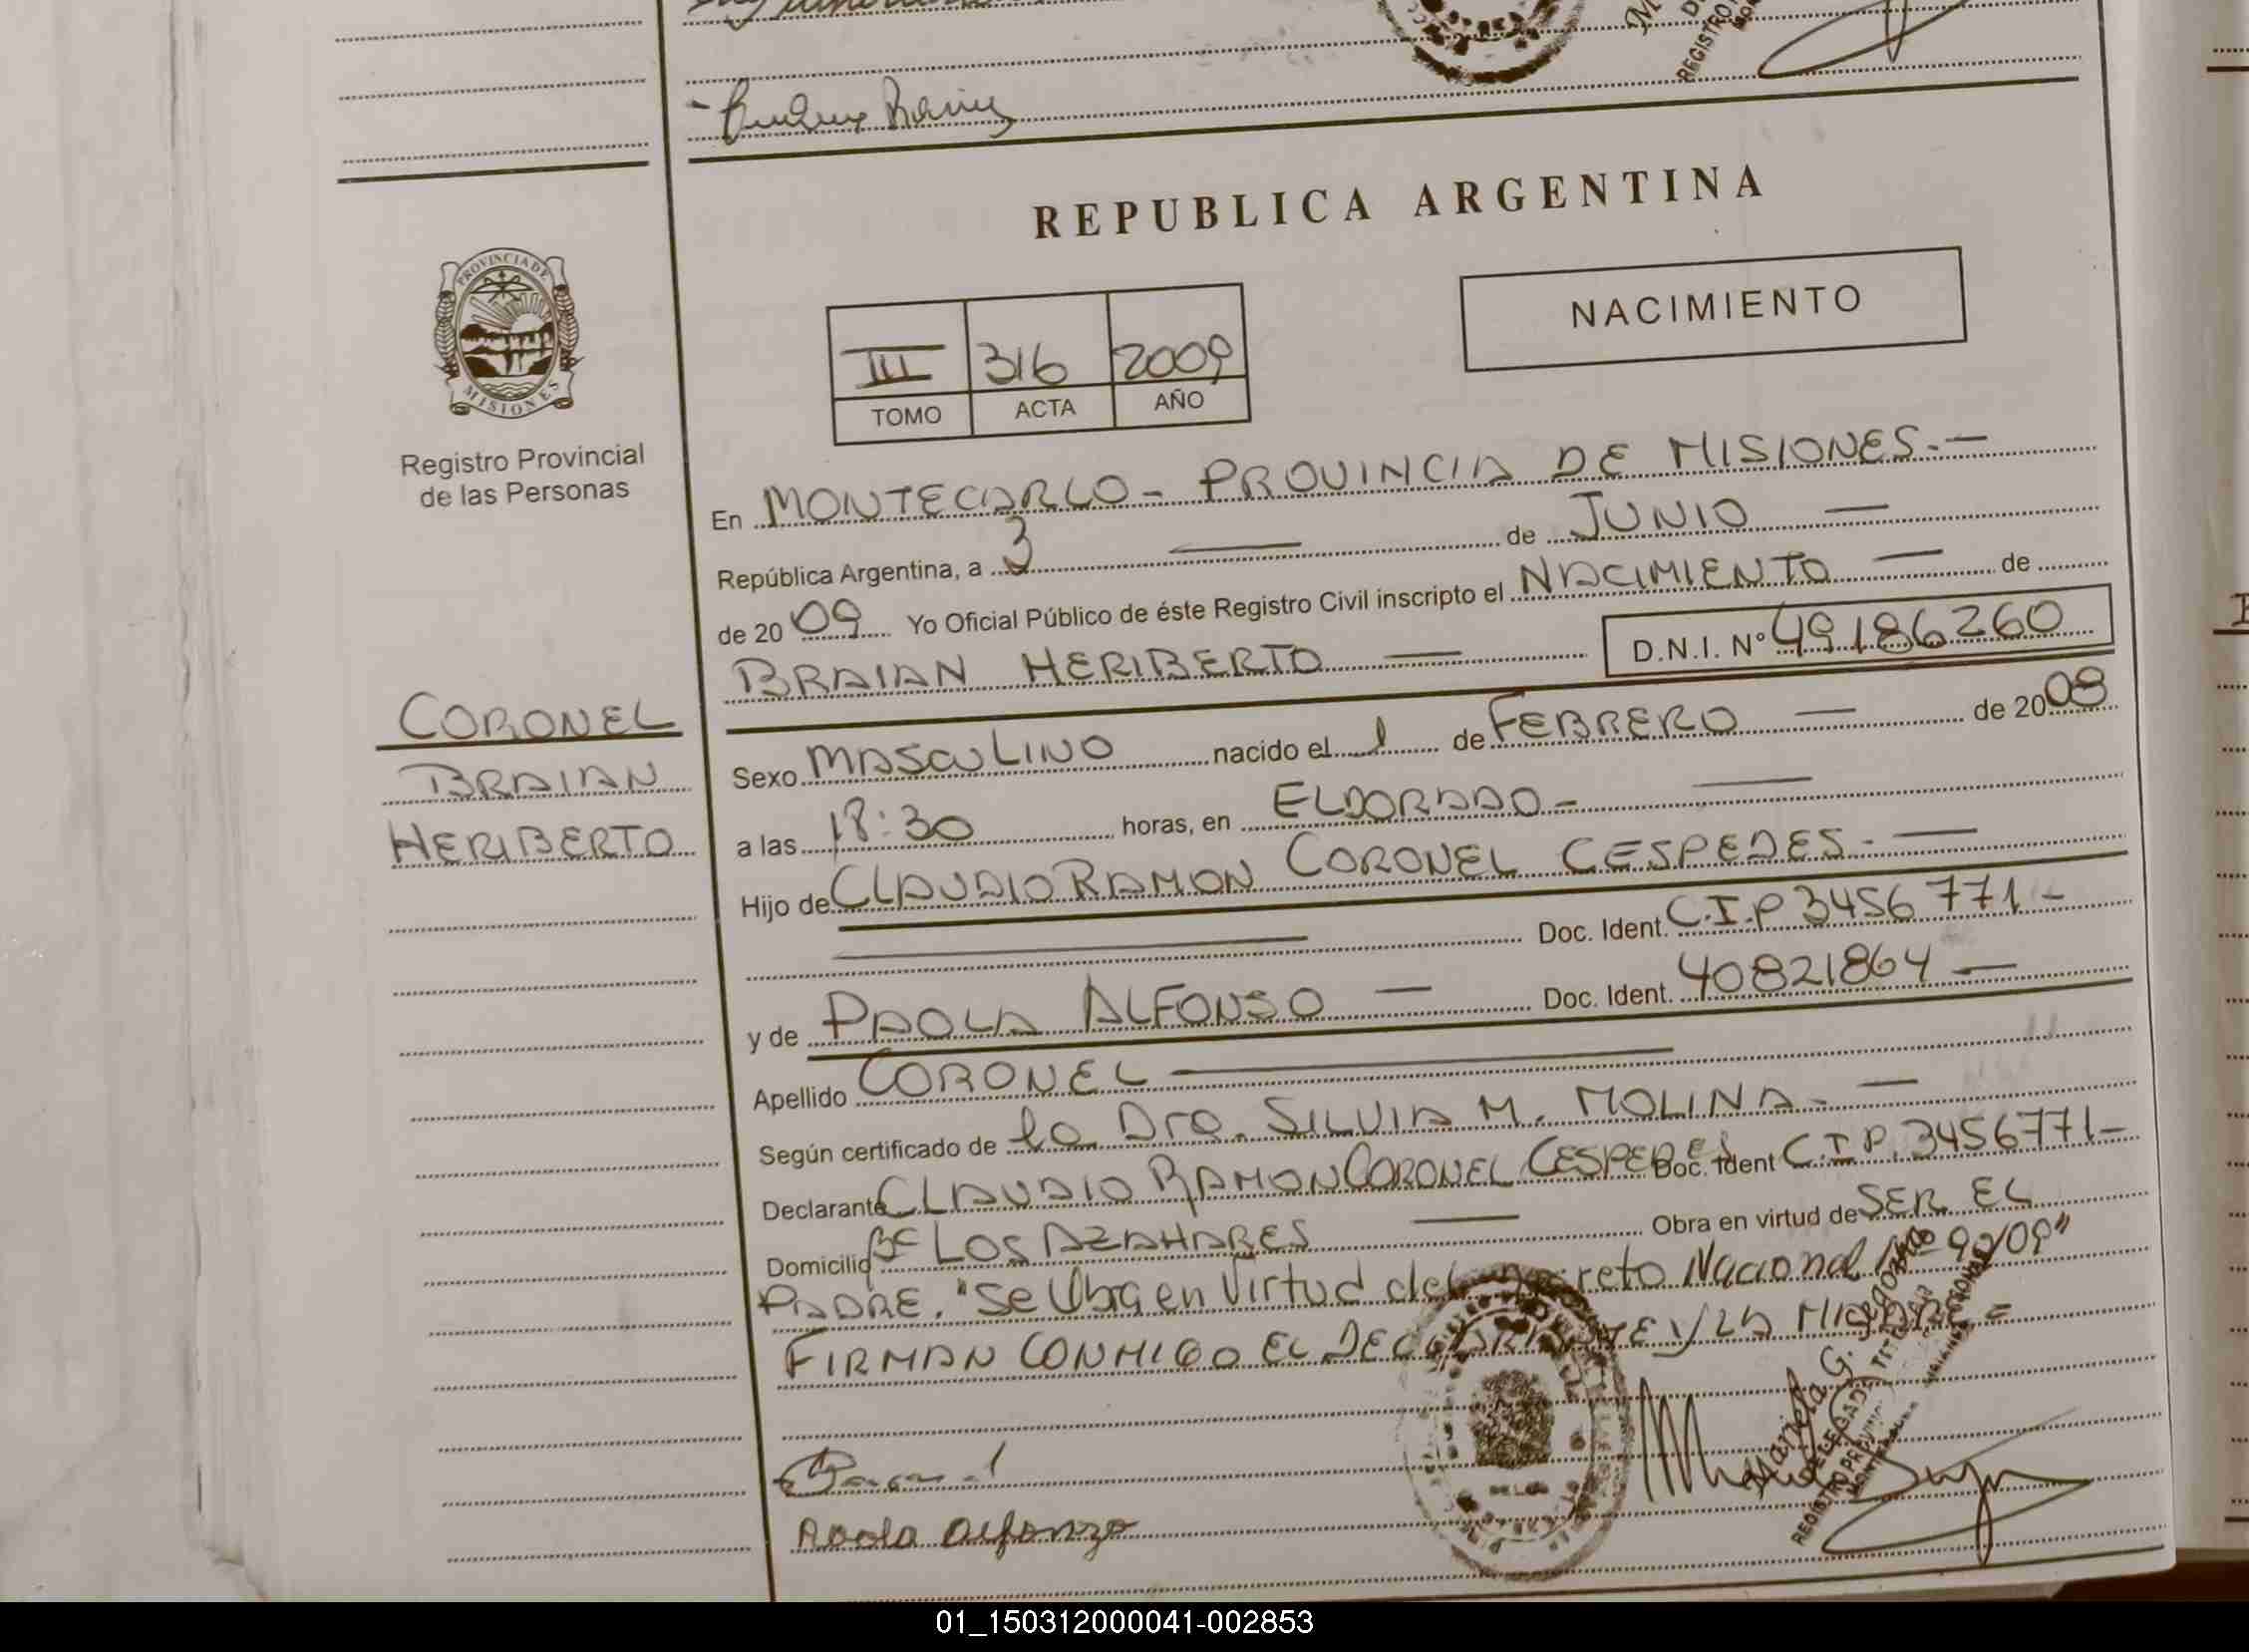 REPUBLICA ARGENTINA
PROVINCIA DE
MISIONES
Registro Provincial
de las Personas
NACIMIENTO
III 316 2009
TOMO ACTA AÑO
En MONTECARLO - PROVINCIA DE MISIONES.-
República Argentina, a 3 de JUNIO
de 2009 Yo Oficial Público de éste Registro Civil inscripto el NACIMIENTO de
BRAIAN HERIBERTO D.N.I. Nº 49186260
CORONEL
BRAIAN
HERIBERTO
Sexo MASCULINO nacido el 1 de FEBRERO de 2008
a las 18:30 horas, en ELDORADO-
Hijo de CLAUDIO RAMON CORONEL CESPEDES.-
Doc. Ident. C.I.P 3456771-
y de PAOLA ALFONSO Doc. Ident. 40821864
Apellido CORONEL
Según certificado de la Dra. SILVIA M. MOLINA-
Declarante CLAUDIO RAMON CORONEL CESPEDES Doc. Ident C.I.P. 3456771-
Domicilio Bº LOS AZAHARES Obra en virtud de SER EL
PADRE. "Se Obra en Virtud del Decreto Nacional Nº 90/09"
FIRMAN CONMIGO EL DECLARANTE Y LA MADRE=
Mariela G.
REGISTRO
Paola Alfonzo
01_150312000041-002853